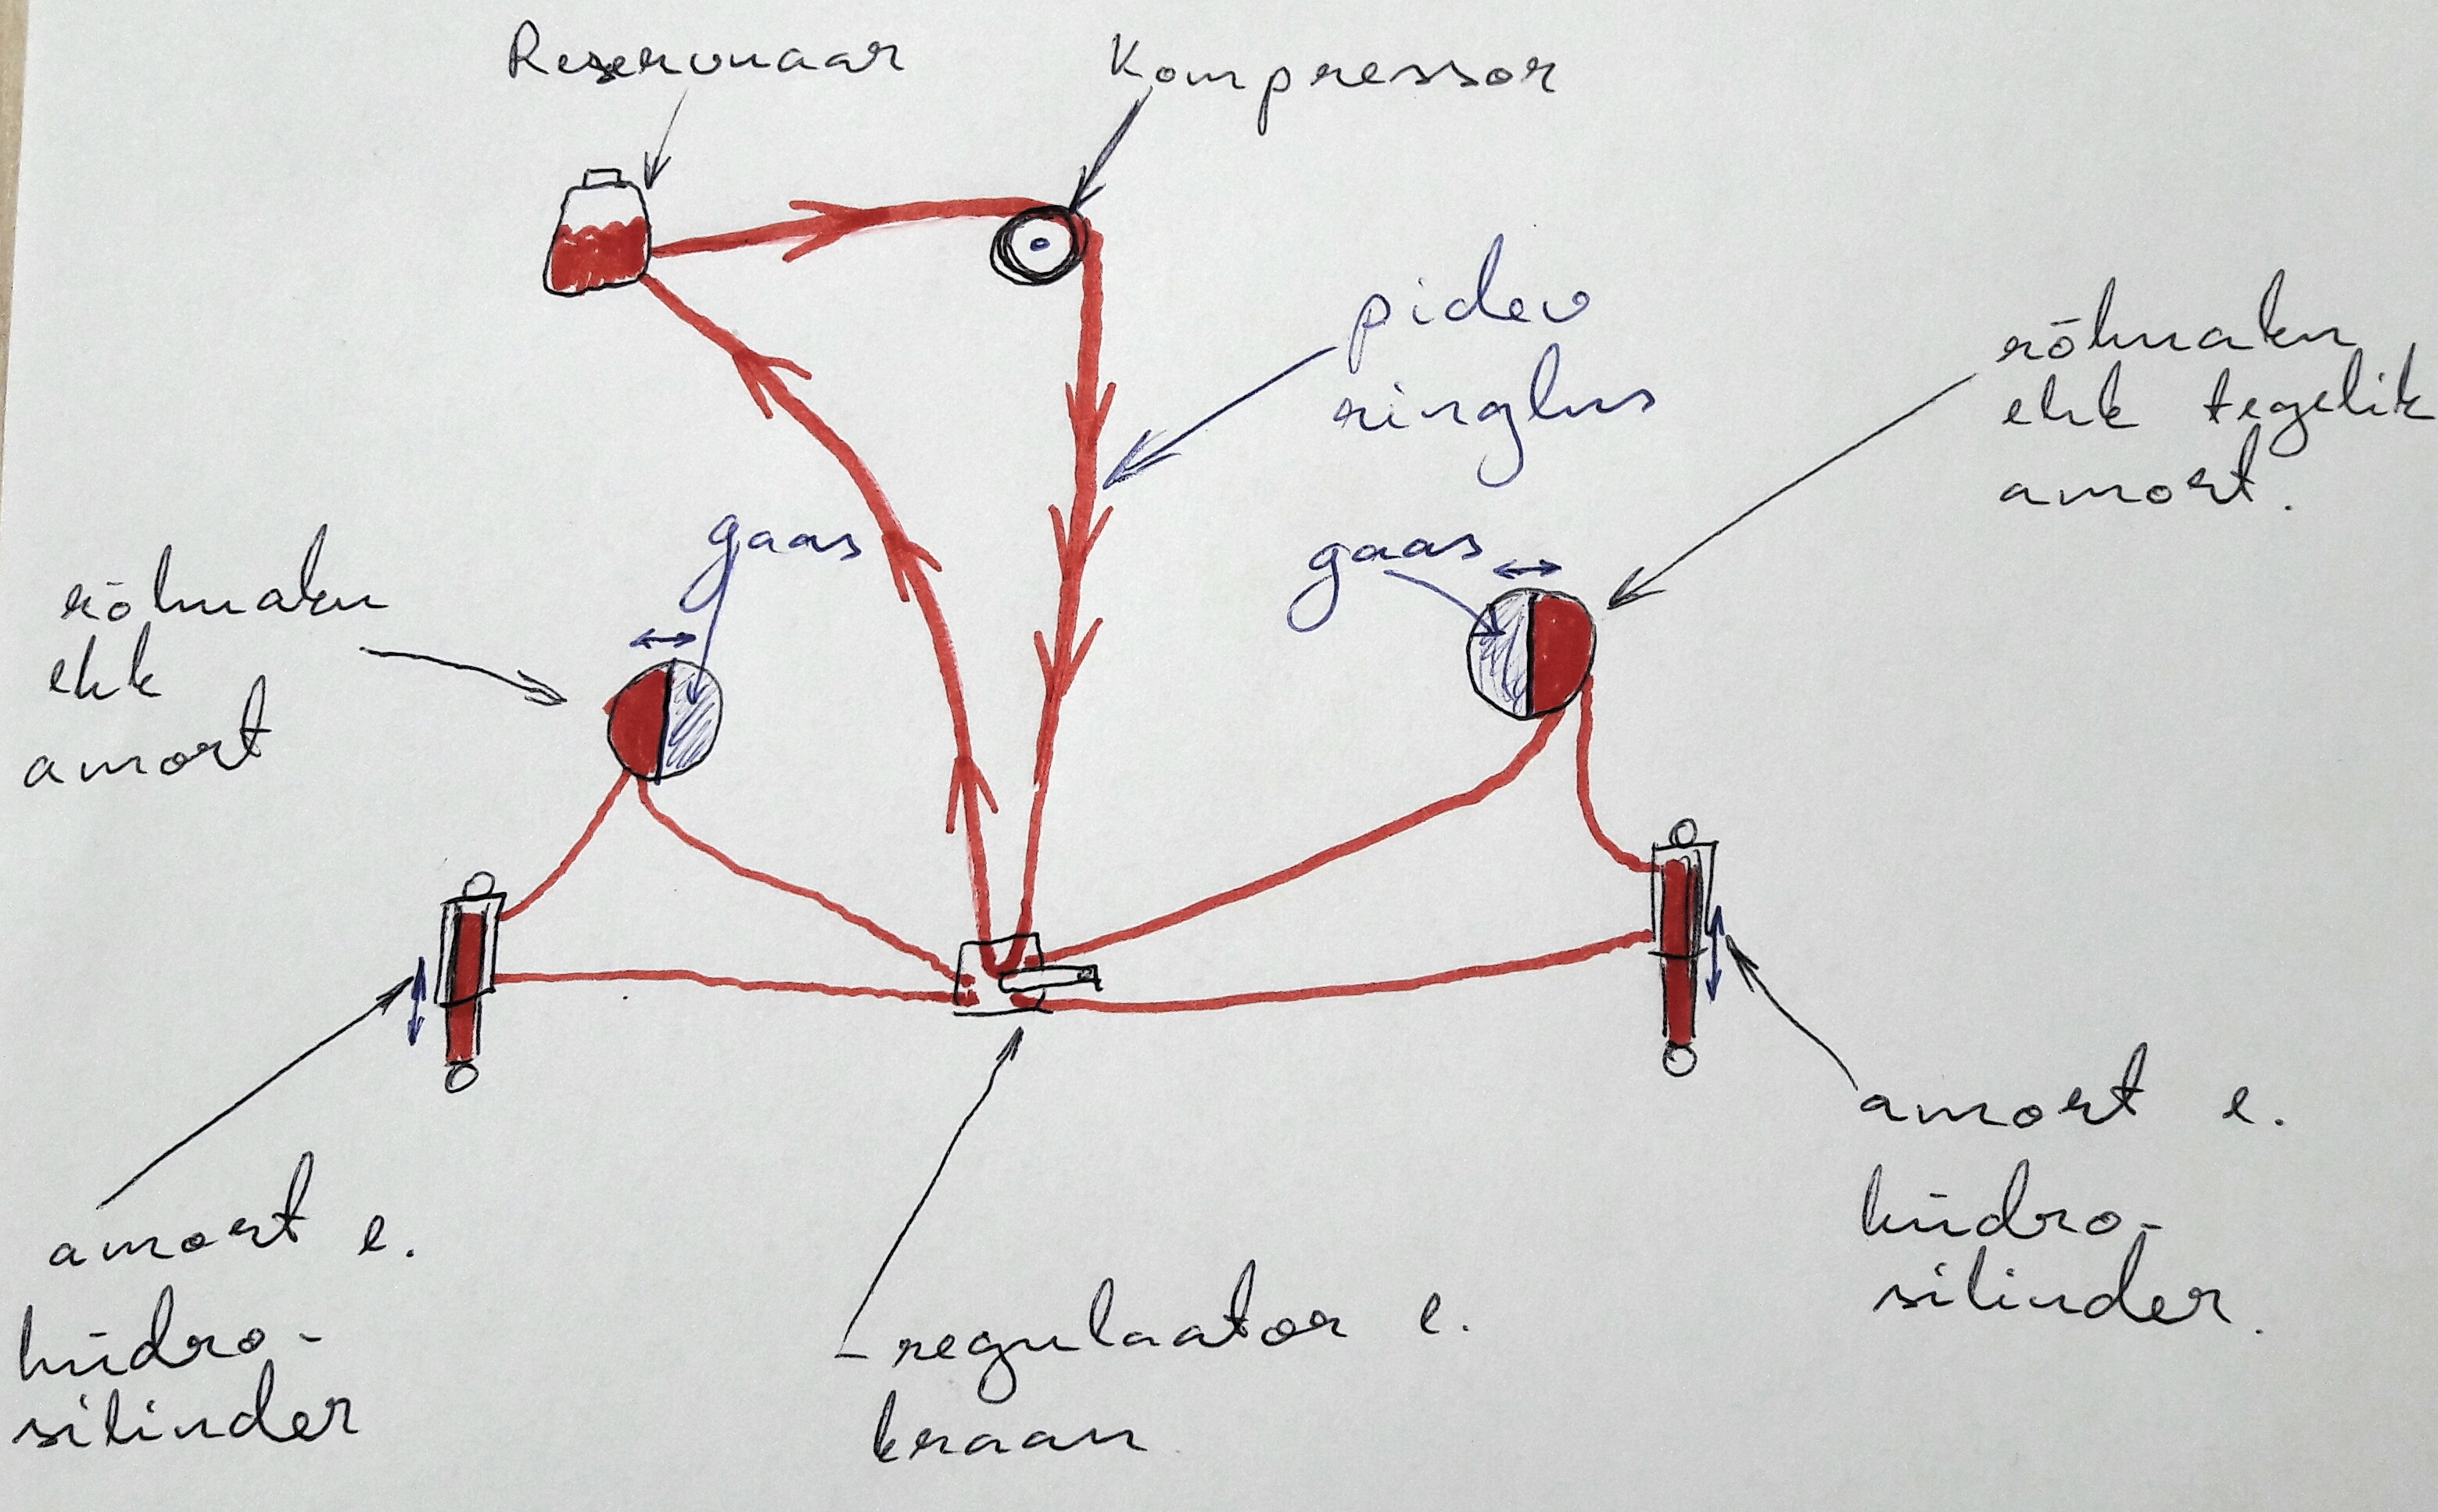 Reservuaar
Kompressor
pidev
ringlus
rõhuaku
ehk tegelik
amort.
gaas
gaas
rõhuaku
ehk
amort
amort e.
hüdro-
silinder.
amort e.
hüdro-
silinder
regulaator e.
kraan